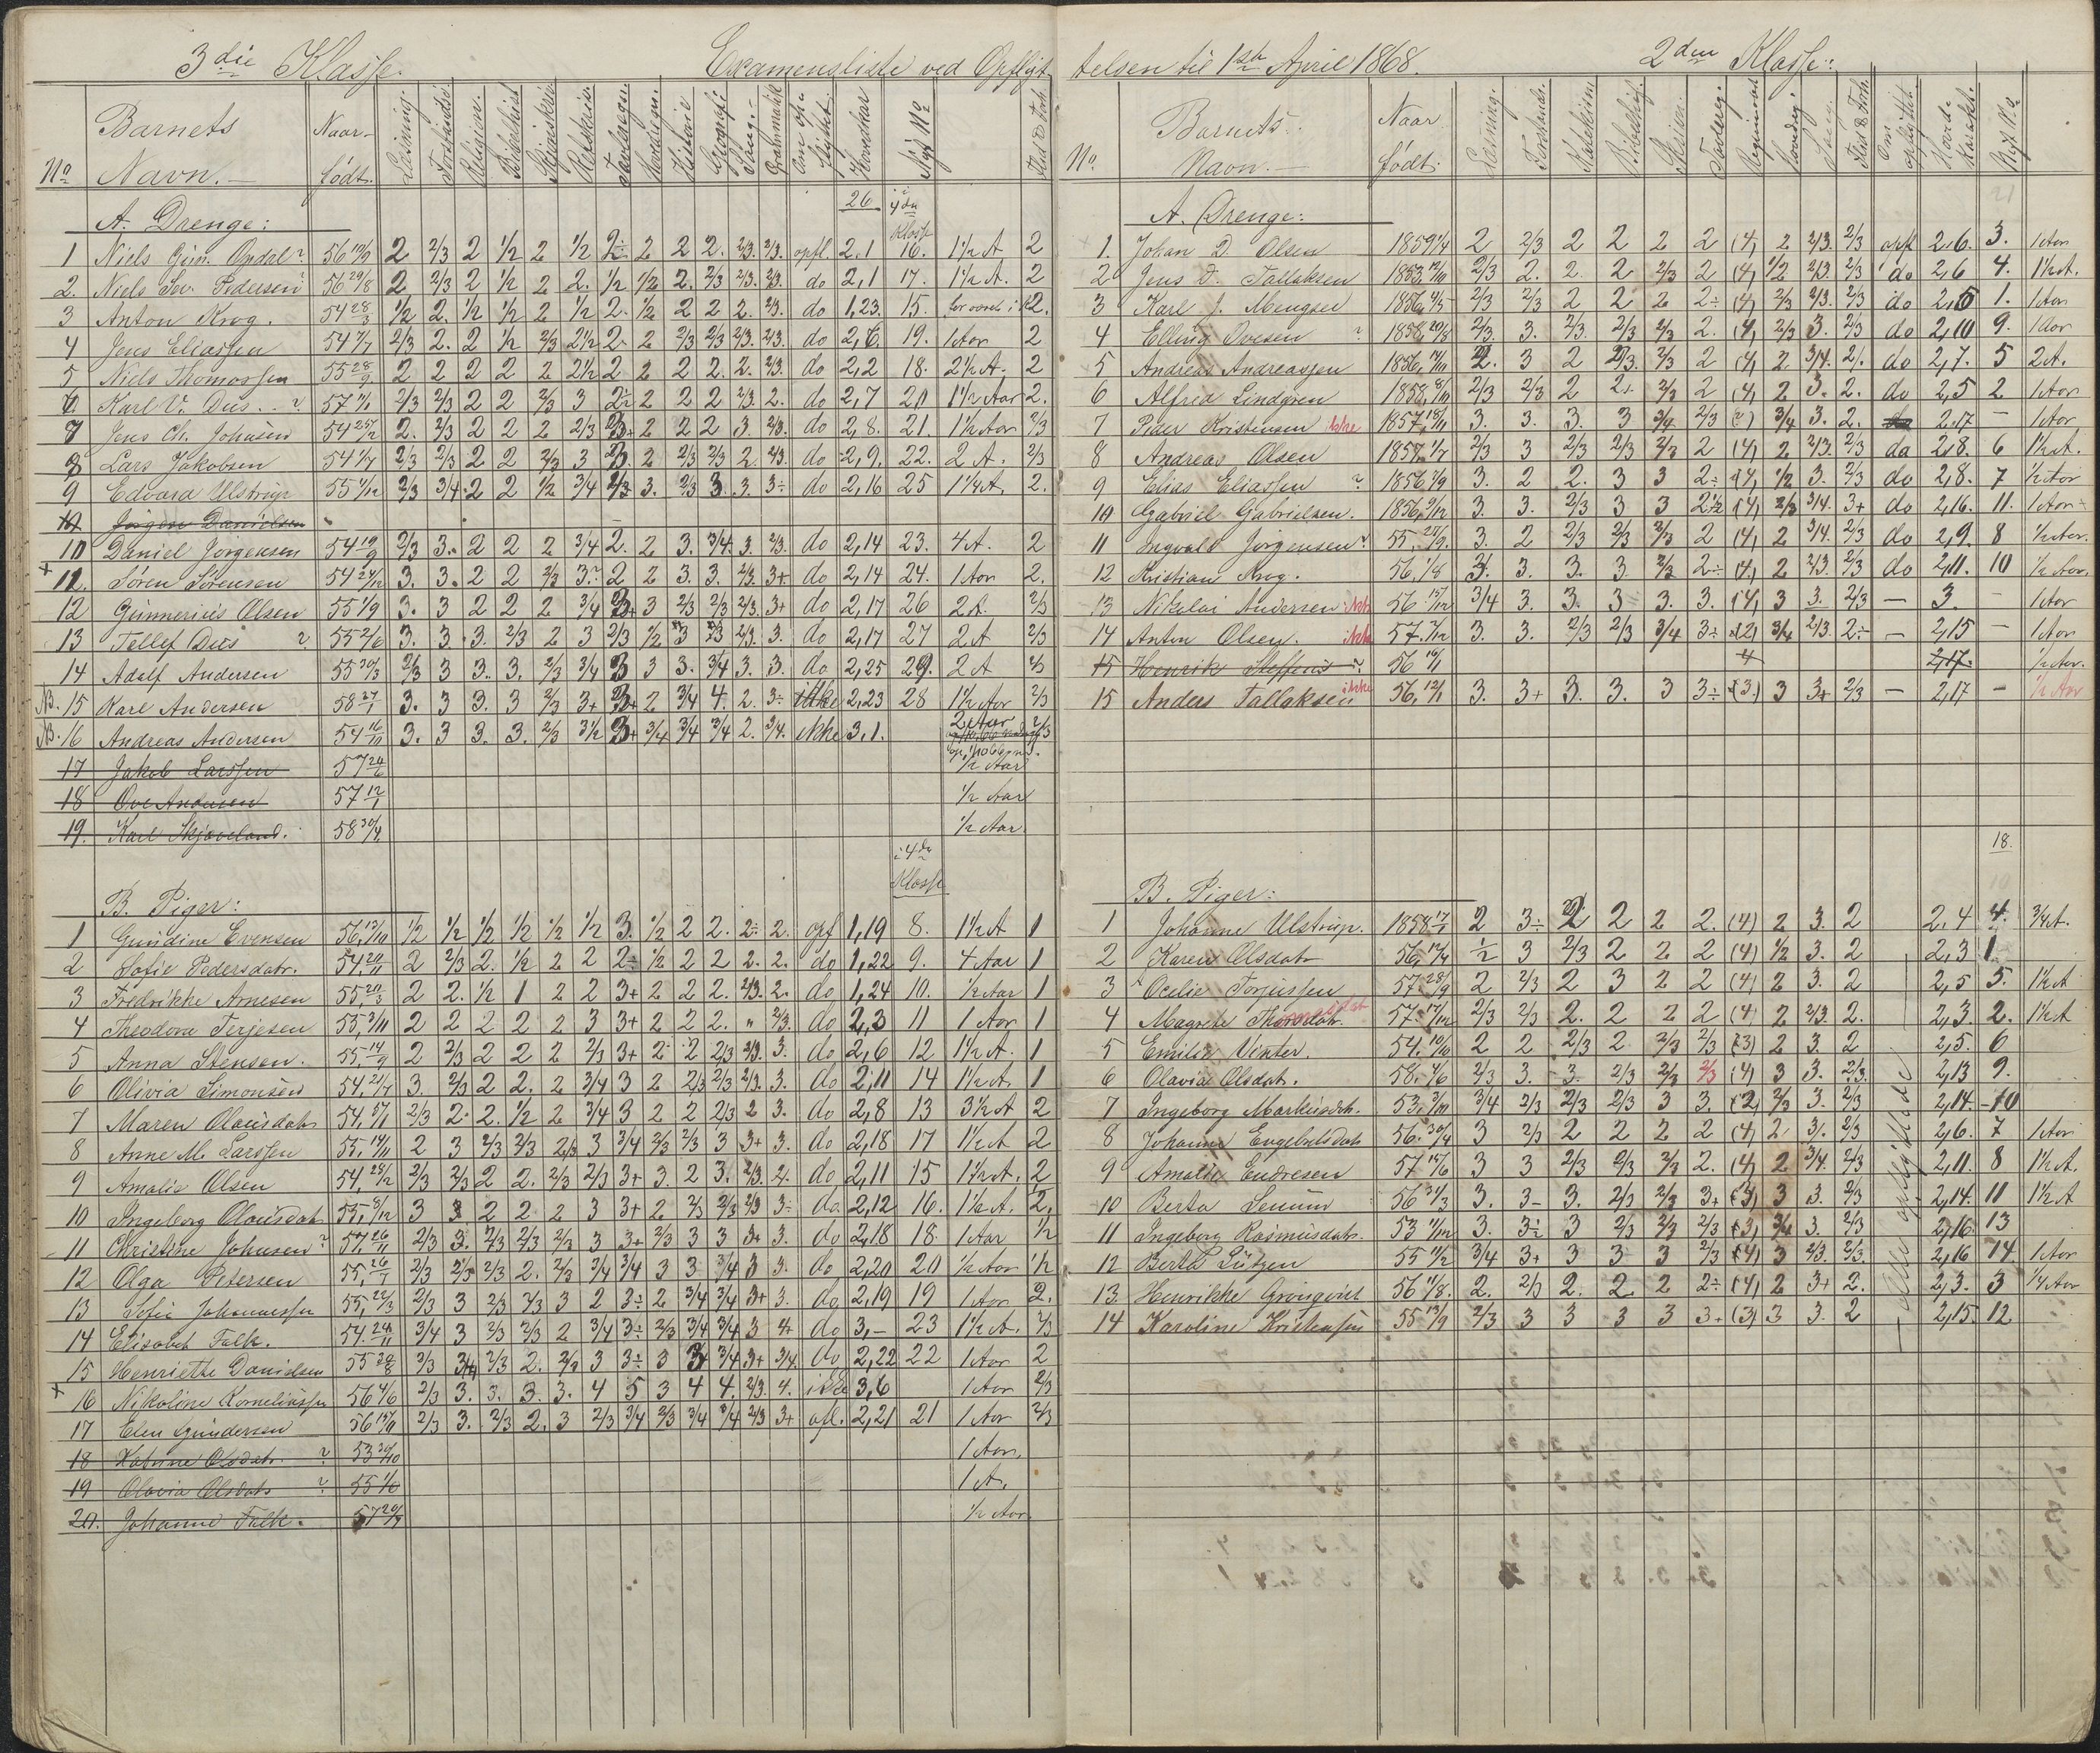 3die Klasse. Examensliste ved Opflyt
No Barnets Navn. Naar født. Læsning. Forstandsø Religion. Bibelhist Skjønskriv Retskrivn. Tavleregn. Hovedregn. Historie Geografi Sang. Gramatik Om opflyttet. Hovedkar Nyt No Flid & Forh.
26 4de Klasse
A. Drenge:
1 Niels Gun. Omdal ? 56 10/9 2 2/3 2 1/2 2 1/2 2÷ 2 2 2. 2/3. 2/3. opfl. 2.1 16. 1½ A 2
2. Niels Sev. Pedersen ? 56 29/8 2 2/3 2 1/2 2 2. 1/2 1/2 2. 2/3 2/3. 2/3. do 2,1 17. 1½ A. 2
3 Anton Krog. 54 28/3 1/2 2. 1/2 1/2 2 1/2 2. 1/2 2 2 2. 2/3. do 1,23. 15. 2.
4 Jens Eliassen 54 7/7 2/3 2. 2 1/2 2/3 2½ 2 2 2/3 2/3 2/3. 2/3. do 2,6. 19. 1 Aar 2
5 Niels Thomassen 55 28/9 2 2 2 2 2 2½ 2 2 2 2. 2. 2/3. do 2,2 18. 2½ A. 2
6 Karl V. Dus. ? 57 11/1 2/3 2/3 2 2 2/3 3 2÷ 2 2 2 2/3. 2. do 2,7 20 1½ Aar 2.
7 Jens Ch. Johnsen 54 25/12 2. 2/3 2 2 2 2/3 3+ 2 2 2 3. 2/3. do 2,8. 21. 1½ Aar 2/3
8 Lars Jakobsen 54 1/7 2/3 2/3 2 2 2/3 3 3. 2 2/3 2/3 2. 2/3. do 2,9. 22. 2 A. 2/3
9 Edvard Ulstrup 55 1/12 2/3 3/4 2 2 1/2 3/4 2/3 3. 2/3 3. 3. 3÷ do 2,16 25 1¼ A. 2.
10 Jørgen Danielsen
10 Daniel Jørgensen 54 19/9 2/3 3. 2 2 2 3/4 2. 2 3. 3/4. 3. 2/3. do 2,14 23. 4 A. 2
11. Søren Sørensen 54 24/12 3. 3. 2 2 2/3 3. 2 2 3. 3. 2/3. 3+ do 2,14 24. 1 Aar 2.
12 Gunnerius Olsen 55 1/9 3. 3 2 2 2 3/4 3+ 3 2/3 2/3 2/3. 3+ do 2,17 26 2 A. 2/3
13 Tellef Dus ? 55 2/6 3. 3. 3. 2/3 2 3 2/3 1/2 3 2/3 2/3. 3. do 2,17 27 2 A 2/3
14 Adolf Andersen 55 30/3 2/3 3 3. 3. 2/3 3/4 3 3 3. 3/4 3. 3. do 2,25 29. 2 A 2/3
NB. 15 Karl Andersen 58 27/1 3. 3 3. 3 2/3 3+ 3+ 2 3/4 4. 2. 3÷ ikke 2,23 28 1½ Aar 2/3
NB. 16 Andreas Andersen 54 16/11 3. 3 3. 3. 2/3 3½ 3+ 3/4 3/4 3/4 2. 3/4. ikke 3,1. 2 Aar 2/3
17 Jakob Larssen 57 24/6 1/2 Aar
18 Ove Andersen 57 12/1 1/2 Aar
19. Karl Skjæveland. 58 30/4 1/2 Aar
i 4de Klasse
B. Piger:
1 Gundine Evensen 56, 13/10 1/2 1/2 1/2 1/2 1/2 1/2 3. 1/2 2 2. 2÷ 2. opf 1,19 8. 1½ A 1
2 Sofie Pedersdatr. 54, 20/11 2 2/3 2. 1/2 2 2 2÷ 1/2 2 2 2. 2. do 1,22 9. 4 Aar 1
3 Fredrikke Arnesen 55, 20/3 2 2. 1/2 1 2 2 3+ 2 2 2. 2/3. 2. do 1,24 10. 1/2 Aar 1
4 Theodora Terjesen 55, 3/11 2 2 2 2 2 3 3+ 2 2 2. " 2/3. do 2,3 11 1 Aar 1
5 Anna Stensen. 55, 14/9 2 2/3 2 2 2 2/3 3+ 2 2 2/3 2/3. 3. do 2,6 12 1½ A. 1
6 Olivia Simonsen 54, 21/7 3. 2/3 2 2. 2 3/4 3 2 2/3 2/3 2/3. 3. do 2,11 14 1½ A. 1
7 Maren Olausdatr 54, 5/1 2/3 2. 2. 1/2 2 3/4 3 2 2 2/3 2 3. do 2,8 13 3½ A 2
8 Anne M. Larssen 55, 14/11 2 3 2/3 2/3 2/3 3 3/4 2/3 2/3 3 3+ 3. do 2,18 17 1½ A 2
9 Amalie Olsen 54, 28/2 2/3 2/3 2 2. 2/3 2/3 3+ 3. 2 3. 2/3. 4. do 2,11 15 1½ A. 2
10 Ingeborg Olausdatr 55, 8/12 3 3 2 2 2 3 3+ 2 2/3 2/3 2/3 3÷ do. 2,12 16. 1½ A. 2.
11 Christine Johnsen ? 57, 26/11 2/3 3. 2/3 2/3 2/3 3 3+ 2/3 3 3 3+ 3. do 2,18 18. 1 Aar 1/2
12 Olga Petersen 55, 26/7 2/3 2/3 2/3 2. 2/3 3/4 3/4 3 3 3/4 3 3. do 2,20 20 1/2 Aar 1/2
13 Sofie Johannessen 55, 22/3 2/3 3 2/3 2/3 3 2 3÷ 2 3/4 3/4 3+ 3. do 2,19 19 1 Aar 2.
14 Elisabet Falk. 54, 24/11 3/4 3 2/3 2/3 2 3/4 3÷ 2/3 3/4 3/4 3 4+ do 3,- 23 1½ A. 2/3
15 Henriette Danielsen 55 30/8 2/3 3/4 2/3 2. 2/3 3 3÷ 3 3 3/4 3+ 3/4 do 2,22 22 1 Aar 2
16 Nikoline Korneliussen 56 4/6 2/3 3. 3. 3. 3. 4 5 3 4 4. 2/3. 4. ikke 3,6 1 Aar 2/3
17 Elen Gundersen 56 15/9 2/3 3. 2/3 2. 3 2/3 3/4 2/3 3/4 3/4 2/3 3+ ofl. 2,21 21 1 Aar 2/3
18 Katrine Olsdatr. ? 53 30/10 1 Aar.
19 Olavia Olsdatr ? 55 1/6 1 A.
20. Johanne Falk. 57 20/7 1/2 Aar
telsen til 1ste April 1868. 2den Klasse:
No. Barnets Navn. Naar født. Læsning. Forstands. Katekism Bibelhist. Skrivn. Tavlereg. Regnemaal Hovedreg. Sang. Flid & Forh. Om opflyttet. Hoved Karakt. Nyt No.
21
A. Drenge:
1. Johan D. Olsen 1859 1/4 2 2/3 2 2 2 2 (4) 2 2/3. 2/3 opfl 2.6. 3. 1 Aar
2 Jens D. Tallaksen 1853, 12/10 2/3 2. 2. 2 2/3 2 (4) 1/2 2/3. 2/3 do 2,6 4. 1½ A.
3 Karl J. Mengsen 1856 2/3 2/3 2 2 2 2÷ (4) 2/3 2/3. 2/3 do 2,5 1. 1 Aar
4 Elling Ovesen ? 1858, 20/8 2/3. 3. 2/3. 2/3 2/3 2. (4) 2/3 3. 2/3 do 2,10 9. 1 Aar
5 Andreas Andreassen 1856, 14/10 2. 3 2 2/3. 2/3 2 (4) 2 3/4. 2. do 2,7. 5 2 A.
6 Alfred Lindgren 1858, 8/11 2/3 2/3 2 2+ 2/3 2 (4) 2 3. 2. do 2,5 2 1 Aar
7 Peder Kristensen ikke 1857, 18/11 3. 3. 3. 3 3/4 2/3 3/4 3. 2. 2.17 - 1 Aar
8 Andreas Olsen 1857, 1/7 2/3 3 2/3 2/3 2/3 2 (4) 2 2/3. 2/3 do 2,8. 6 1½ A.
9 Elias Eliassen ? 1856 3/9 3. 2 2. 3 3 2÷ (4) 1/2 3. 2/3 do 2,8. 7 1/2 Aar
10 Gabriel Gabrielsen. 1856, 9/12 3. 3. 2/3 3 3 2½ (4) 2/3 3/4. 3+ do 2,16. 11. 1 Aar
11 Ingvald Jørgensen ? 55, 28/9. 3. 2 2/3 2/3 2/3 2 (4) 2 3/4. 2/3 do 2,9. 8 1/2 Aar.
12 Kristian Krog. 56, 1/8 3. 3. 3. 3. 2/3 2÷ (4) 2 2/3. 2/3 do 2,11. 10 1/2 Aar.
13 Nikolai Andersen ikke 56 15/12 3/4 3. 3. 3 3. 3. (4) 3 3. 2/3 - 3. - 1 Aar
14 Anton Olsen. ikke 57. 7/12 3. 3. 2/3 2/3 3/4 3÷ (2) 3/4 2/3. 2÷ - 2,15 - 1 Aar
15 Henrik Steffens ? 56 16/11 4 2,17. 1/2 Aar.
15 Anders Tallaksen ikke 56, 12/1 3. 3+ 3. 3. 3 3÷ (3) 3 3+ 2/3 - 2,17 - 1/2 Aar
18.
B. Piger:
1 Johanne Ulstrup. 1858 17/1 2 3÷ 2 2 2 2. (4) 2 3. 2 2.4 4. 3/4 A.
2 Karen Olsdatr 56, 12/4 1/2 3 2/3 2 2 2 (4) 1/2 3. 2 2,3 1.
3 Ocelie Torjussen 57. 28/9 2 2/3 2 3 2 2 (4) 2 3. 2 2,5 5. 1½ A
4 Magrete Thorsdatr. 57. 17/12 2/3 2/3 2. 2 2 2 (4) 2 2/3. 2. 2,3 2. 1½ A
5 Emilie Vinter. 54. 10/10 2 2 2/3 2 2/3 2/3 (3) 2 3. 2 2,5. 6
6 Olavia Olsdatr. 58. 4/6 2/3 3. 3. 2/3 2/3 2/3 (4) 3 3. 2/3. 2,13 9.
7 Ingeborg Markusdtr. 53. 3/10 3/4 2/3 2/3 2/3 3 3. (2) 2/3 3. 2/3 2,14. 10
8 Johanne Engebretsdatr 56. 30/4 3 2/3 2 2 2 2 (4) 2 3. 2/3 2,6. 7 1 Aar
9 Amalie Endresen 57 15/6 3 3 2/3 2/3 2/3 2. (4) 2 3/4. 2/3 2,11. 8 1½ A.
10 Berta 56 31/3 3. 3- 3. 2/3 2/3 3+ (3) 3 3. 2/3 2,14. 11 1½ A
11 Ingeborg Rasmusdatr. 53 11/12 3. 3÷ 3 2/3 2/3 2/3 (3) 3/4 3. 2/3 2,16 13
12 Berta Lützen 55 11/2 3/4 3+ 3 3 3 2/3 (4) 3 2/3. 2/3. 2,16 14. 1 Aar
13. Henrikke Grönqvist 56 11/8. 2. 2/3 2. 2. 2 2÷ (4) 2 3+ 2. 2,3. 3 1/4 Aar
14 Karoline Kristensen 55 13/9 2/3 3 3 3 3 3+ (3) 3 3. 2 2,15 12
— Alle opflyttede —